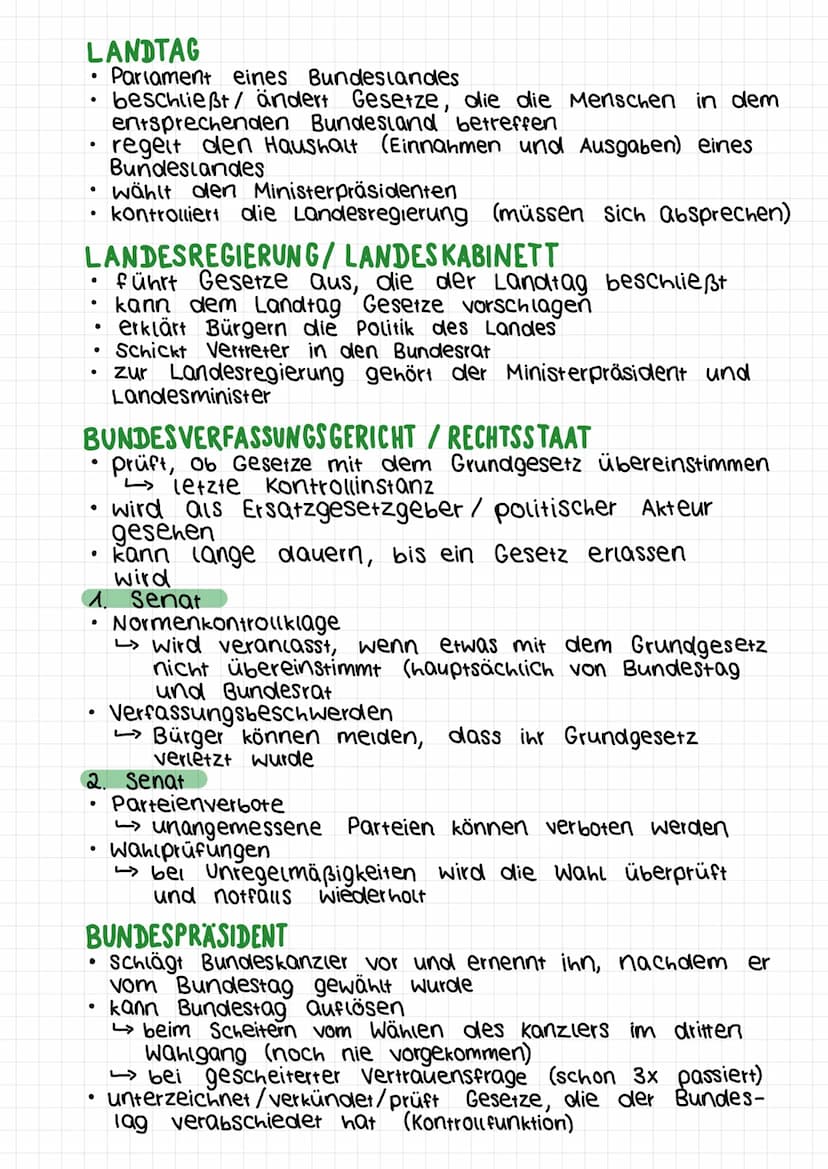 LANDTAG
• Parlament eines Bundeslandes
• beschließt/ ändert Gesetze, die die Menschen in dem
entsprechenden Bundesland betreffen
• regelt den Haushalt (Einnahmen und Ausgaben) eines
Bundeslandes
• wählt den Ministerpräsidenten
• kontrolliert die Landesregierung (müssen sich absprechen)
LANDESREGIERUNG/ LANDESKABINETT
• führt Gesetze aus, die der Landtag beschließt
• kann dem Landtag Gesetze vorschlagen
• erklärt Bürgern die Politik des Landes
• schickt Vertreter in den Bundesrat
• zur Landesregierung gehört der Ministerpräsident und
Landesminister
BUNDESVERFASSUNGSGERICHT / RECHTSSTAAT
• prüft, ob Gesetze mit dem Grundgesetz übereinstimmen
↳ letzte Kontrollinstanz
• wird als Ersatzgesetzgeber / politischer Akteur
gesehen
• kann lange dauern, bis ein Gesetz erlassen
wird
1. Senat
• Normenkontrollklage
↳ wird veranlasst, wenn etwas mit dem Grundgesetz
nicht übereinstimmt (hauptsächlich von Bundestag
und Bundesrat
• Verfassungsbeschwerden
↳ Bürger können melden, dass ihr Grundgesetz
verletzt wurde
2. Senat
• Parteienverbote
↳ unangemessene Parteien können verboten werden
• Wahlprüfungen
↳ bei Unregelmäßigkeiten wird die Wahl überprüft
und notfalls wiederholt
BUNDESPRÄSIDENT
• schlägt Bundeskanzler vor und ernennt ihn, nachdem er
vom Bundestag gewählt wurde
• kann Bundestag auflösen
↳ beim Scheitern vom Wählen des Kanzlers im dritten
Wahlgang (noch nie vorgekommen)
↳ bei gescheiterter Vertrauensfrage (schon 3x passiert)
• unterzeichnet/verkündet/prüft Gesetze, die der Bundes-
tag verabschiedet hat (Kontrollfunktion)